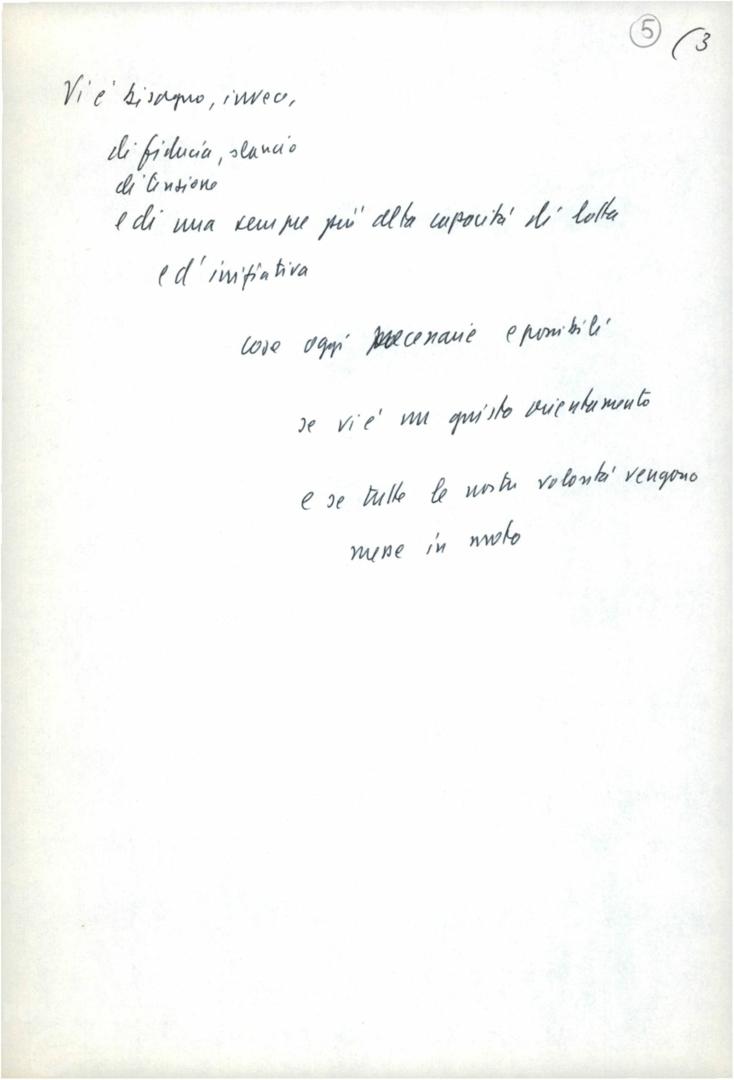 5 (3
Vi è bisogno, invece,
di fiducia, slancio
di tensione
e di una sempre più alta capacità di lotta
e d'iniziativa
cose oggi necessarie e possibili
se vi è un giusto orientamento
e se tutte le nostre volontà vengono
messe in moto